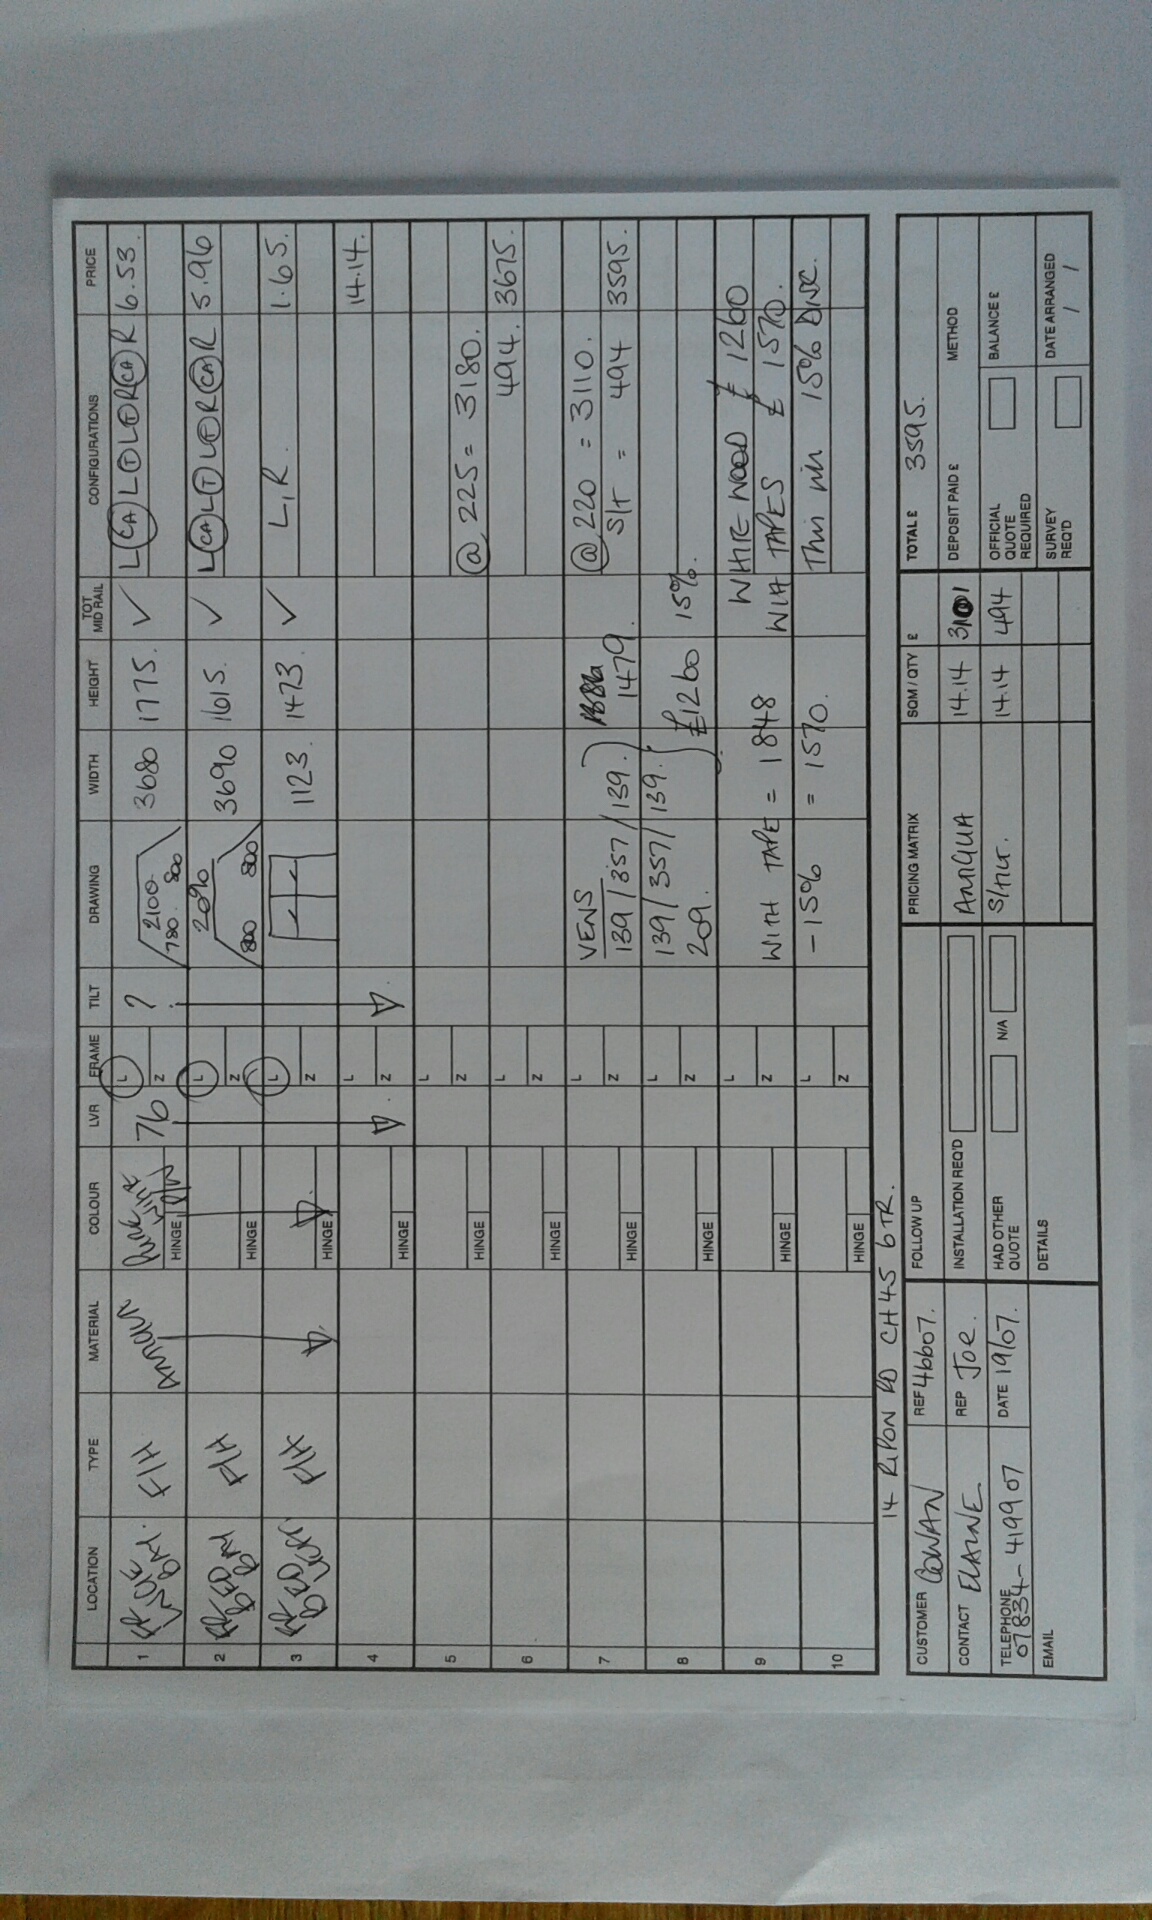 LOCATION TYPE MATERIAL COLOUR LVR FRAME TILT DRAWING WIDTH HEIGHT TOT MID RAIL CONFIGURATIONS PRICE
1 F/H ANTIGUA WHITE HINGE 76 L Z ? 2100 780 800 3680 1775. ✓ L(CA)L(T)L(T)R(CA)R 6.53.
2 FR BED RM F/H HINGE L Z 2090 800 800 3690 1615. ✓ L(CA)L(T)L(T)R(CA)R 5.96
3 F/H HINGE L Z 1123. 1473. ✓ L,R. 1.65.
4 HINGE L Z 14.14.
5 HINGE L Z @ 225 = 3180.
6 HINGE L Z 494. 3675.
7 HINGE L Z VENS @ 220 = 3110.
139/357/139. 1479. S/T = 494 3595.
8 HINGE L Z 139/357/139. £1260 15%.
209.
9 HINGE L Z WHITE WOOD £ 1260
WITH TAPE = 1848 WITH TAPES £ 1570.
10 HINGE L Z -15% = 1570. This in 15% DISC.
14 RIPON RD CH45 6TR.
CUSTOMER COWAN REF 46607. FOLLOW UP PRICING MATRIX SQM / QTY £ TOTAL £ 3595.
CONTACT ELAINE REP JOE. INSTALLATION REQ'D ANTIGUA 14.14 DEPOSIT PAID £ METHOD
TELEPHONE 07834-419907 DATE 19/07. HAD OTHER QUOTE N/A 14.14 494 OFFICIAL QUOTE REQUIRED BALANCE £
EMAIL DETAILS SURVEY REQ'D DATE ARRANGED / /